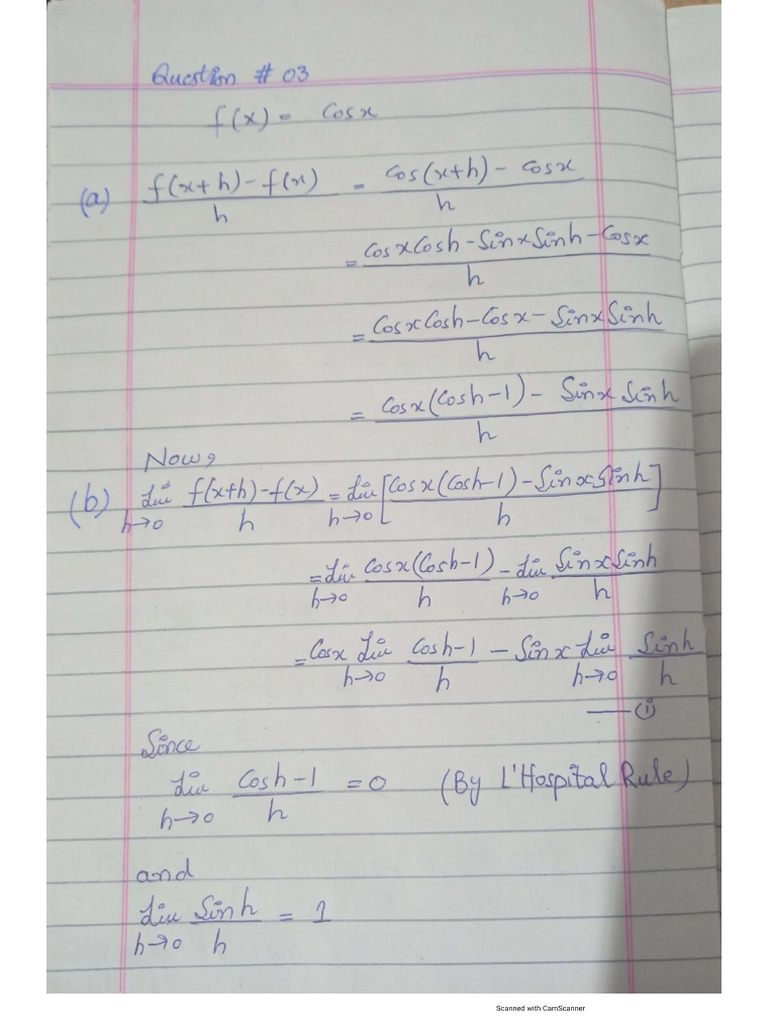 Question # 03
f(x) = Cosx
(a) f(x+h)-f(x) / h = Cos(x+h) - Cosx / h
= CosxCosh-SinxSinh-Cosx / h
= CosxCosh-Cosx-SinxSinh / h
= Cosx(Cosh-1) - Sinx Sinh / h
Now,
(b) Lim h→0 f(x+h)-f(x) / h = Lim h→0 [Cosx(Cosh-1)-SinxSinh / h]
= Lim h→0 Cosx(Cosh-1) / h - Lim h→0 SinxSinh / h
= Cosx Lim h→0 Cosh-1 / h - Sinx Lim h→0 Sinh / h
—(i)
Since
Lim h→0 Cosh-1 / h = 0 (By L'Hospital Rule)
and
Lim h→0 Sinh / h = 1
Scanned with CamScanner